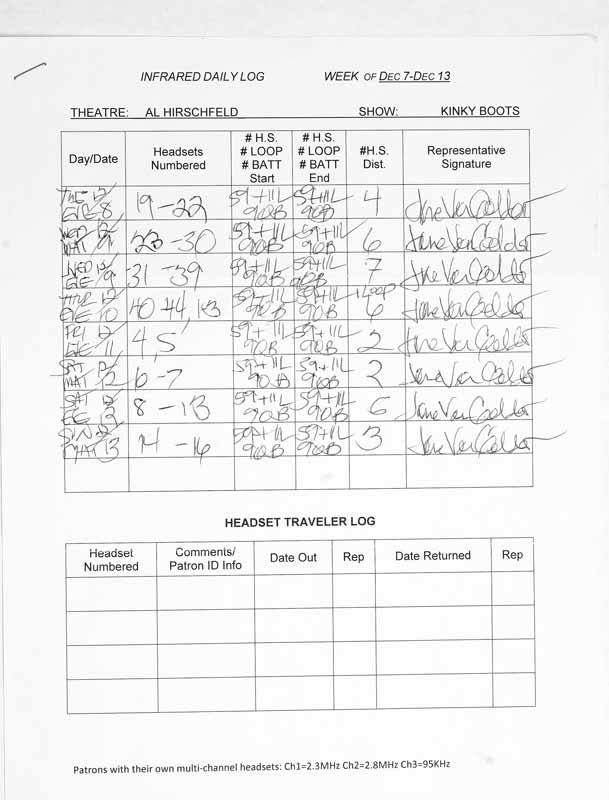 INFRARED DAILY LOG WEEK OF DEC 7-DEC 13
THEATRE: AL HIRSCHFELD SHOW: KINKY BOOTS
Day/Date Headsets Numbered # H.S. # LOOP # BATT Start # H.S. # LOOP # BATT End #H.S. Dist. Representative Signature
TUE 12/ EVE 8 19-22 59+11L 90B 59+11L 90B 4 Jane Van Gelder
WED 12/ MAT 9 23-30 59+11L 90B 59+11L 90B 6 Jane Van Gelder
WED 12/ EVE 9 31-39 59+11L 90B 59+11L 90B 7 Jane Van Gelder
THUR 12/ EVE 10 40 44, 1-3 59+11L 90B 59+11L 90B 1 LOOP 6 Jane Van Gelder
FRI 12/ EVE 11 4,5 59+11L 90B 59+11L 90B 2 Jane Van Gelder
SAT 12/ MAT 12 6-7 59+11L 90B 59+11L 90B 2 Jane Van Gelder
SAT 12/ 8-13 59+11L 90B 59+11L 90B 6 Jane Van Gelder
SUN 12/ MAT 13 14-16 59+11L 90B 59+11L 90B 3 Jane Van Gelder
HEADSET TRAVELER LOG
Headset Numbered Comments/ Patron ID Info Date Out Rep Date Returned Rep
Patrons with their own multi-channel headsets: Ch1=2.3MHz Ch2=2.8MHz Ch3=95KHz